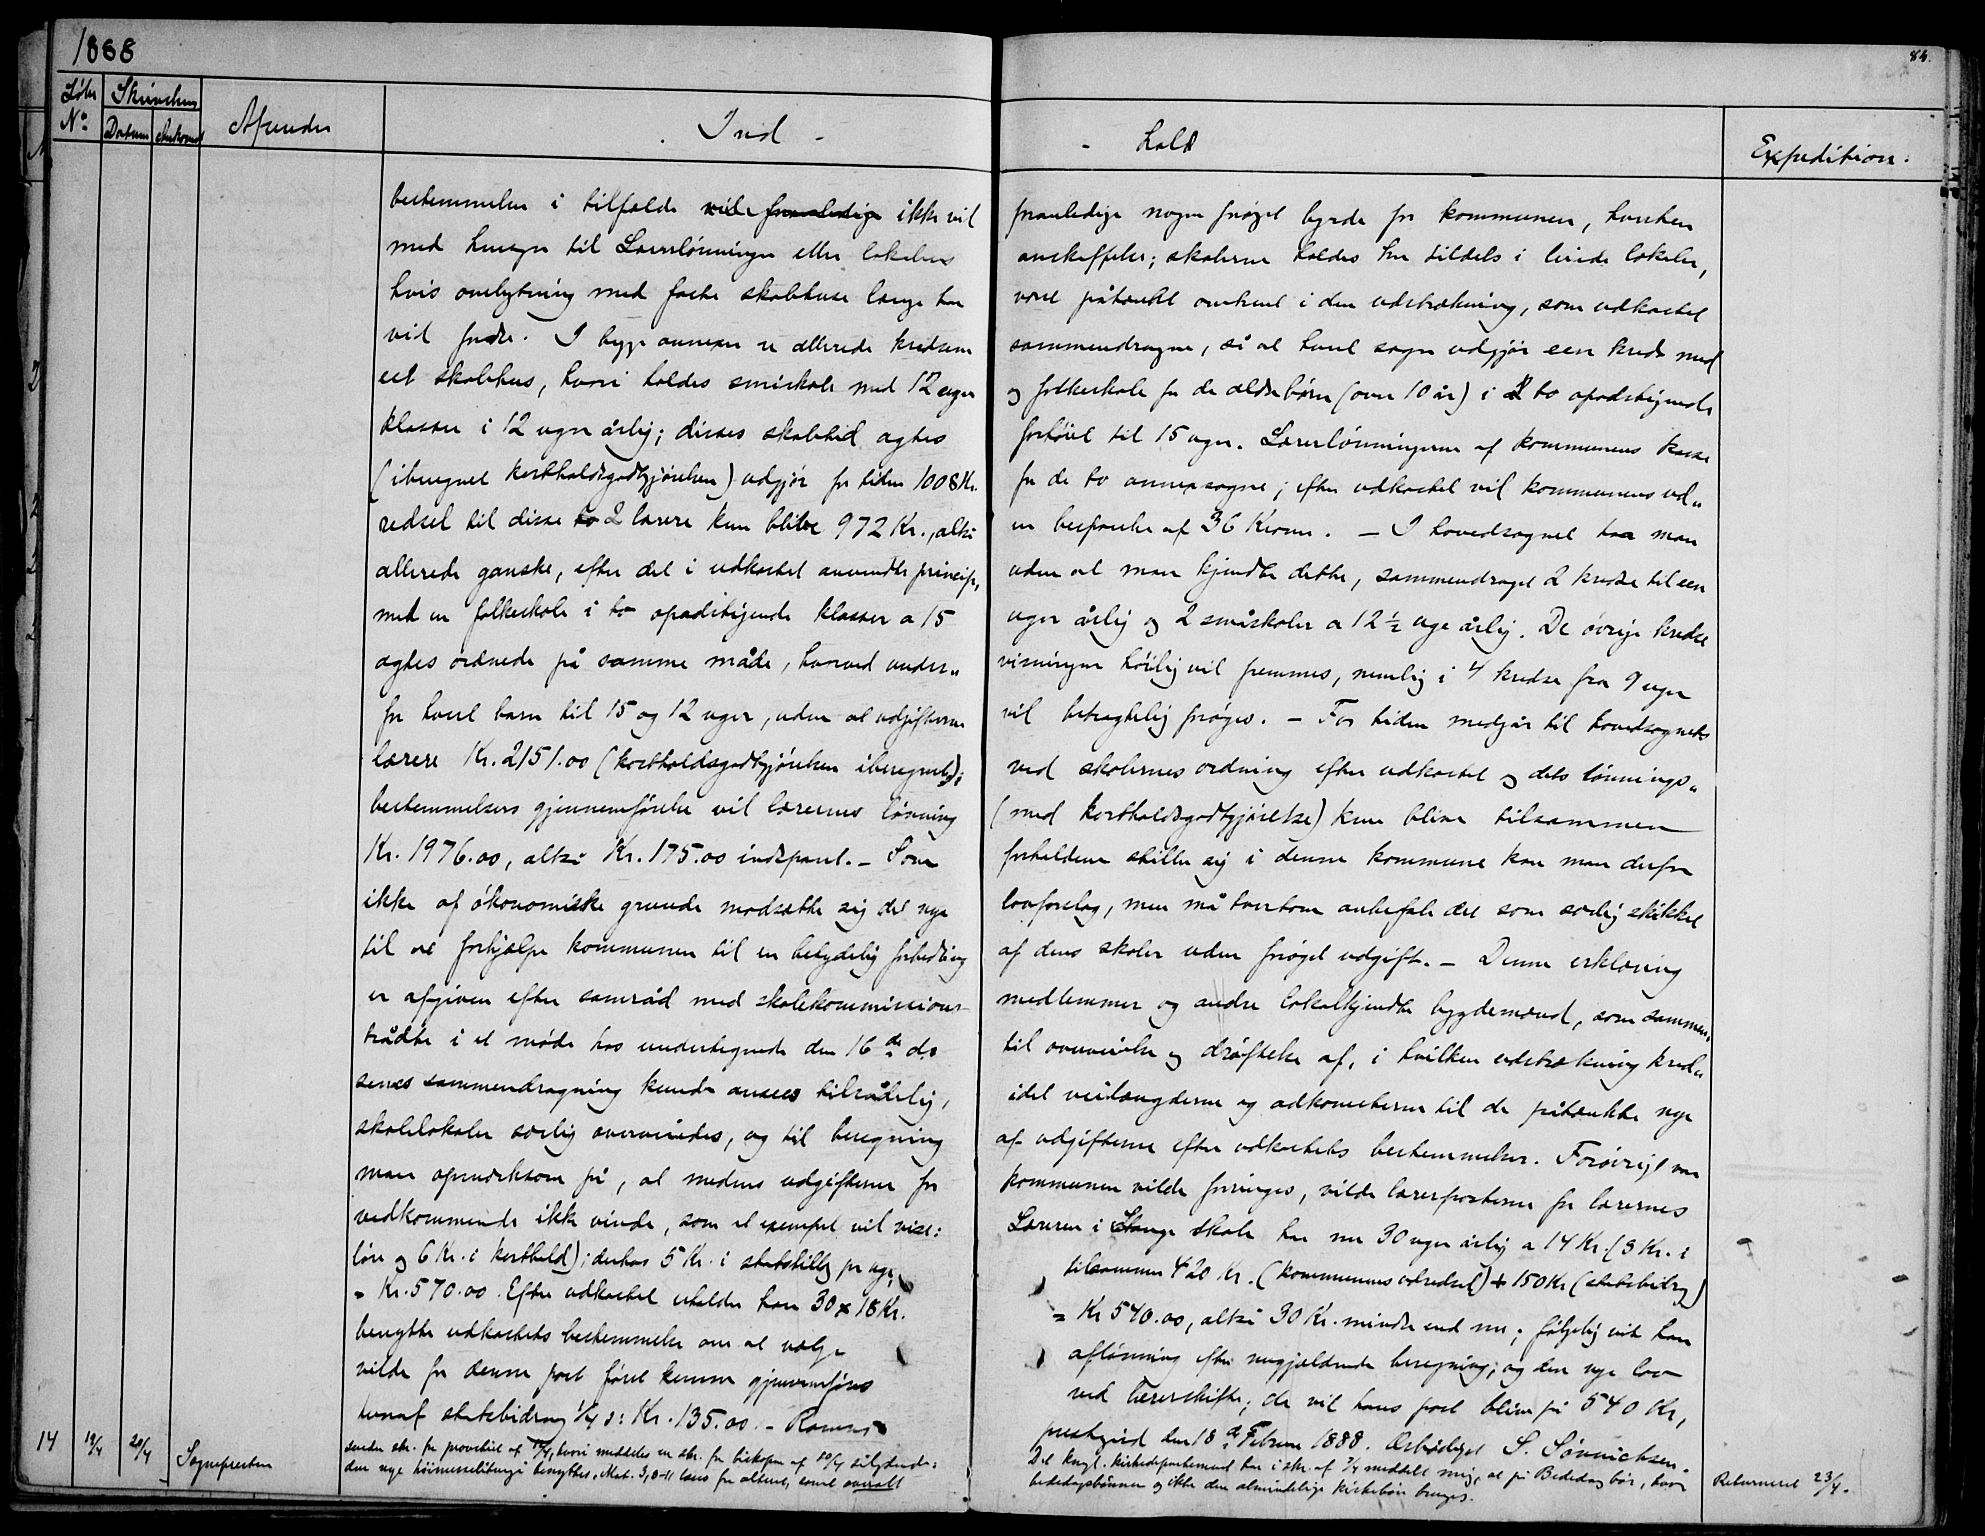 1888
84.
Løbe N°
Skrivelsens
Datum Ankomst
Afsender
Ind -
- hold
Expedition.
bestemmelser i tilfælde vil foranledige ikke vil
foranledige nogen forøget byrde for kommunen, hverken
med hensyn til Lærerlønninger eller lokalers
anskaffelse; skolerne holdes her tildels i leiede lokaler,
hvis ombytning med faste skolehuse længe har
været påtænkt omtrent i den udstrækning, som udkastet
vil fordre. I begge annexer er allerede kredsene
sammendragne, så at hvert sogn udgjør een kreds med
eet skolehus, hvori holdes småskole med 12 uger
og folkeskole for de ældre børn (over 10 år) i to opadstigende
klasser i 12 uger årlig; disses skoletid agtes
forhøiet til 15 uger. Lærerlønningerne af kommunens kasse
(iberegnet kostholdsgodtgjørelsen) udgjør for tiden 1008 Kr.
for de to annexsogne; efter udkastet vil kommunens ud„
redsel til disse to 2 lærere kun blive 972 Kr., altså
en besparelse af 36 Kroner. – I hovedsognet har man
allerede ganske, efter det i udkastet anvendte princip,
uden at man kjendte dette, sammendraget 2 kredse til een
med en folkeskole i to opadstigende klasser a 15
uger årlig og 2 småskoler a 12 ½ uge årlig. De øvrige kredse
agtes ordnede på samme måde, hvorved under„
visningen høilig vil fremmes, nemlig i 4 kredse fra 9 uger
for hvert barn til 15 og 12 uger, uden at udgifterne
vil betragtelig forøges. – For tiden medgår til hovedsognets
lærere Kr. 2151.00 (kostholdsgodtgjørelsen iberegnet);
ved skolernes ordning efter udkastet og dets lønnings„
bestemmelsers gjennemførelse vil lærernes lønning
(med kostholdsgodtgjørelse) kun blive tilsammen
Kr. 1976.00, altså Kr. 175.00 indsparet. – Som
forholdene stiller sig i denne kommune kan man derfor
ikke af økonomiske grunde modsætte sig det nye
lovforslag, men må tvertom anbefale det som særlig skikket
til at forhjælpe kommunen til en betydelig forbedring
af dens skoler uden forøget udgift. – Denne erklæring
er afgiven efter samråd med skolekommissions
medlemmer og andre lokalkjendte bygdemænd, som sammen„
trådte i et møde hos undertegnede den 16de ds
til overveielse og drøftelse af, i hvilken udstrækning kred„
senes sammendragning kunde ansees tilrådelig,
idet veilængderne og adkomsterne til de påtænkte nye
skolelokaler særlig overveiedes, og til beregning
af udgifterne efter udkastets bestemmelser. Forøvrigt var
man opmærksom på, at medens udgifterne for
kommunen vilde forringes, vilde lærerposterne for lærernes
vedkommende ikke vinde, som et exempel vil vise:
Læreren i Stange skole har nu 30 uger årlig a 14 Kr. (8 Kr. i
løn og 6 Kr. i kosthold); derhos 5 Kr. i statstillæg pr uge,
tilsammen 420 Kr. (kommunens udredsel) + 150 Kr (statsbidrag)
= Kr. 570.00. Efter udkastet erholder han 30 x 18 Kr.
= Kr 540.00, altså 30 Kr. mindre end nu; følgelig vil han
benytte udkastets bestemmelse om at vælge
aflønning efter nugjældende beregning; og den nye lov
vilde for denne post først kunne gjennemføres
ved lærerskifte; da vil hans post blive på 540 Kr,
hvoraf statsbidrag ¼ ɔ: Kr. 135.00. – Ramnæs
prestegård den 18de Februar 1888. Ærbødigst S. Sönnichsen.
14 19/4 20/4 Sognepresten
sender skr. fra provstiet af 17/4, hvori meddeles en skr. fra biskopen af 10/4 sålydende:
Det kngl. kirkedepartement har i skr. af 7/4 meddelt mig, at på Bededag bør, hvor
den nye høimesseliturgi benyttes, Mat. 3, 8-11 læses fra alteret, samt overalt
bededagsbønnen og ikke den almindelige kirkebøn bruges.
Returneret 23/4.